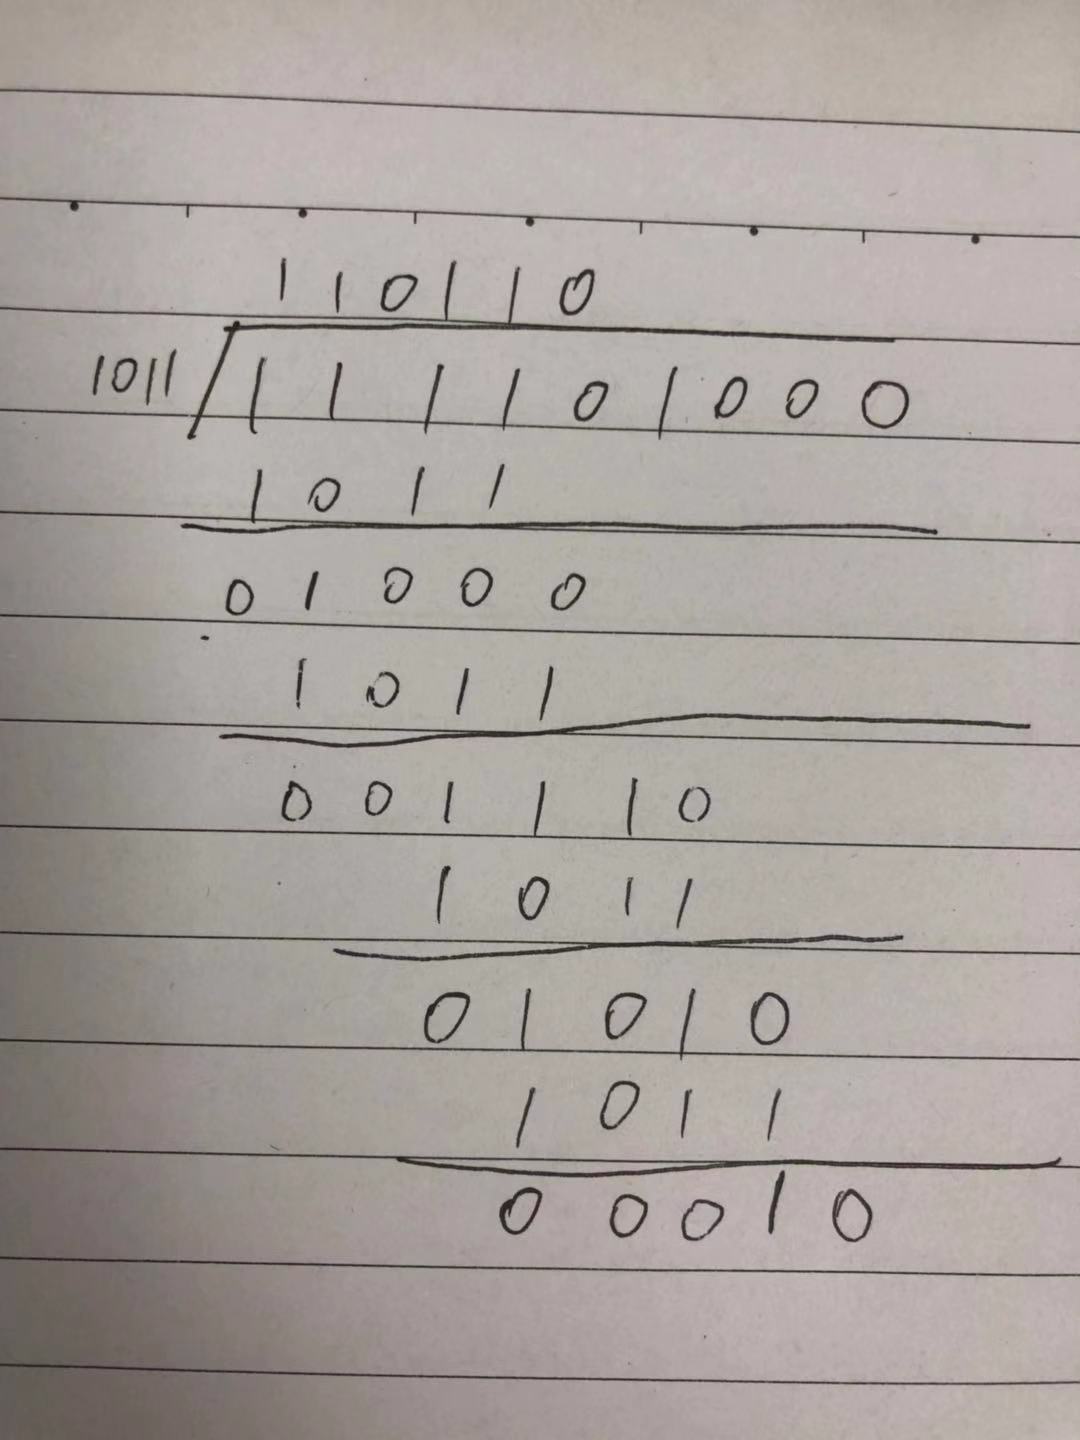 110110
1011 / 111101000
1011
01000
1011
001110
1011
01010
1011
00010